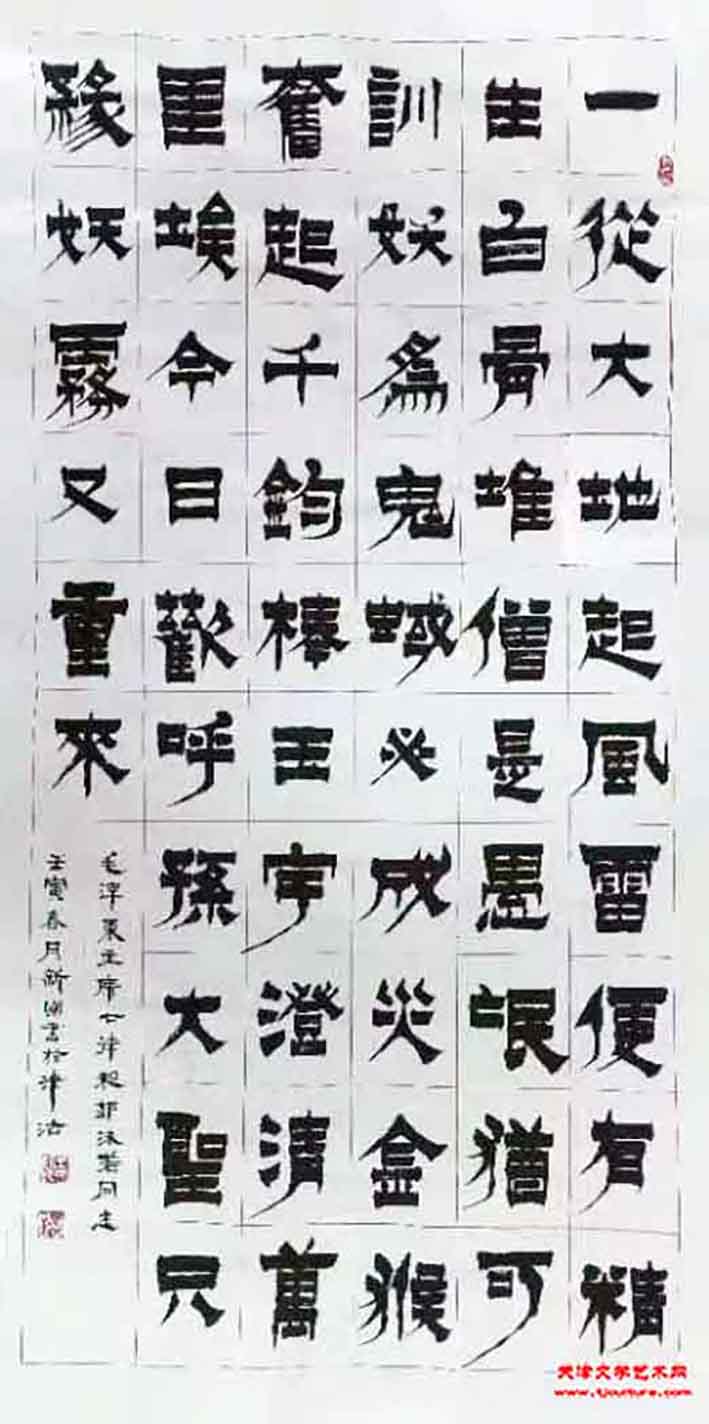 一從大地起風雷便有精
生白骨堆僧是愚氓猶可
訓妖爲鬼蜮必成災金猴
奮起千鈞棒玉宇澄清萬
里埃今日歡呼孫大聖只
緣妖霧又重來
毛澤東主席七律和郭沫若同志
壬寅春月新書於津沽
天津文学艺术网
www.tjculture.com